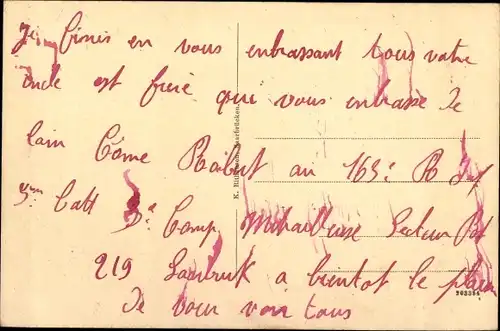 Je finis en vous enbrassant tous votre
oncle est frere qui vous enbrasse De
lain Côme Rabut au 163e R
3me Batt De Camp Mitrailleuse Secteur
219 Sarbruk a bientot le plaisir
De vous voir tous